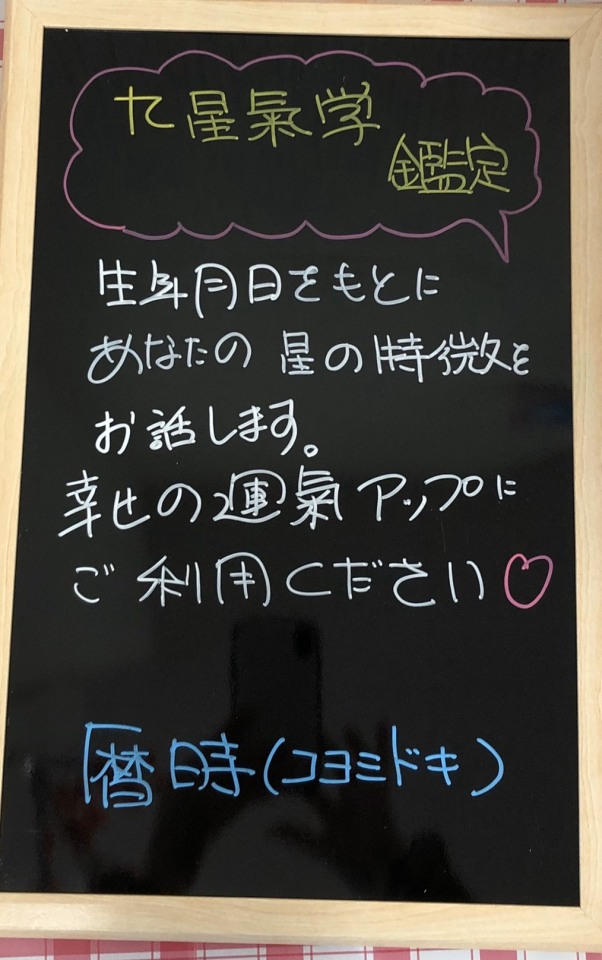 九星氣学
鑑定
生年月日をもとに
あなたの星の特徴を
お話します。
幸せの運氣アップに
ご利用ください♡
暦時(コヨミドキ)